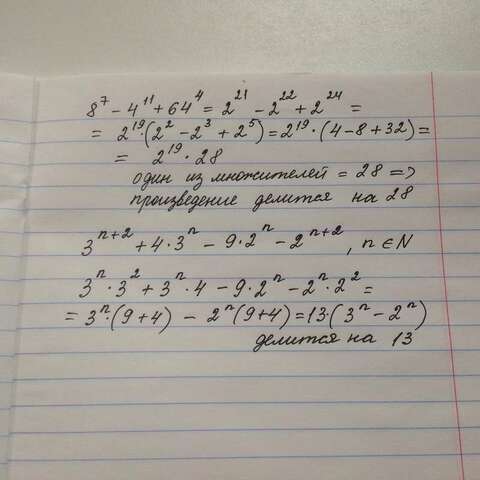 8⁷ - 4¹¹ + 64⁴ = 2²¹ - 2²² + 2²⁴ =
= 2¹⁹·(2² - 2³ + 2⁵) = 2¹⁹·(4 - 8 + 32) =
= 2¹⁹·28
один из множителей = 28 =>
произведение делится на 28
3ⁿ⁺² + 4·3ⁿ - 9·2ⁿ - 2ⁿ⁺², n ∈ N
3ⁿ·3² + 3ⁿ·4 - 9·2ⁿ - 2ⁿ·2² =
= 3ⁿ·(9+4) - 2ⁿ(9+4) = 13·(3ⁿ - 2ⁿ)
делится на 13